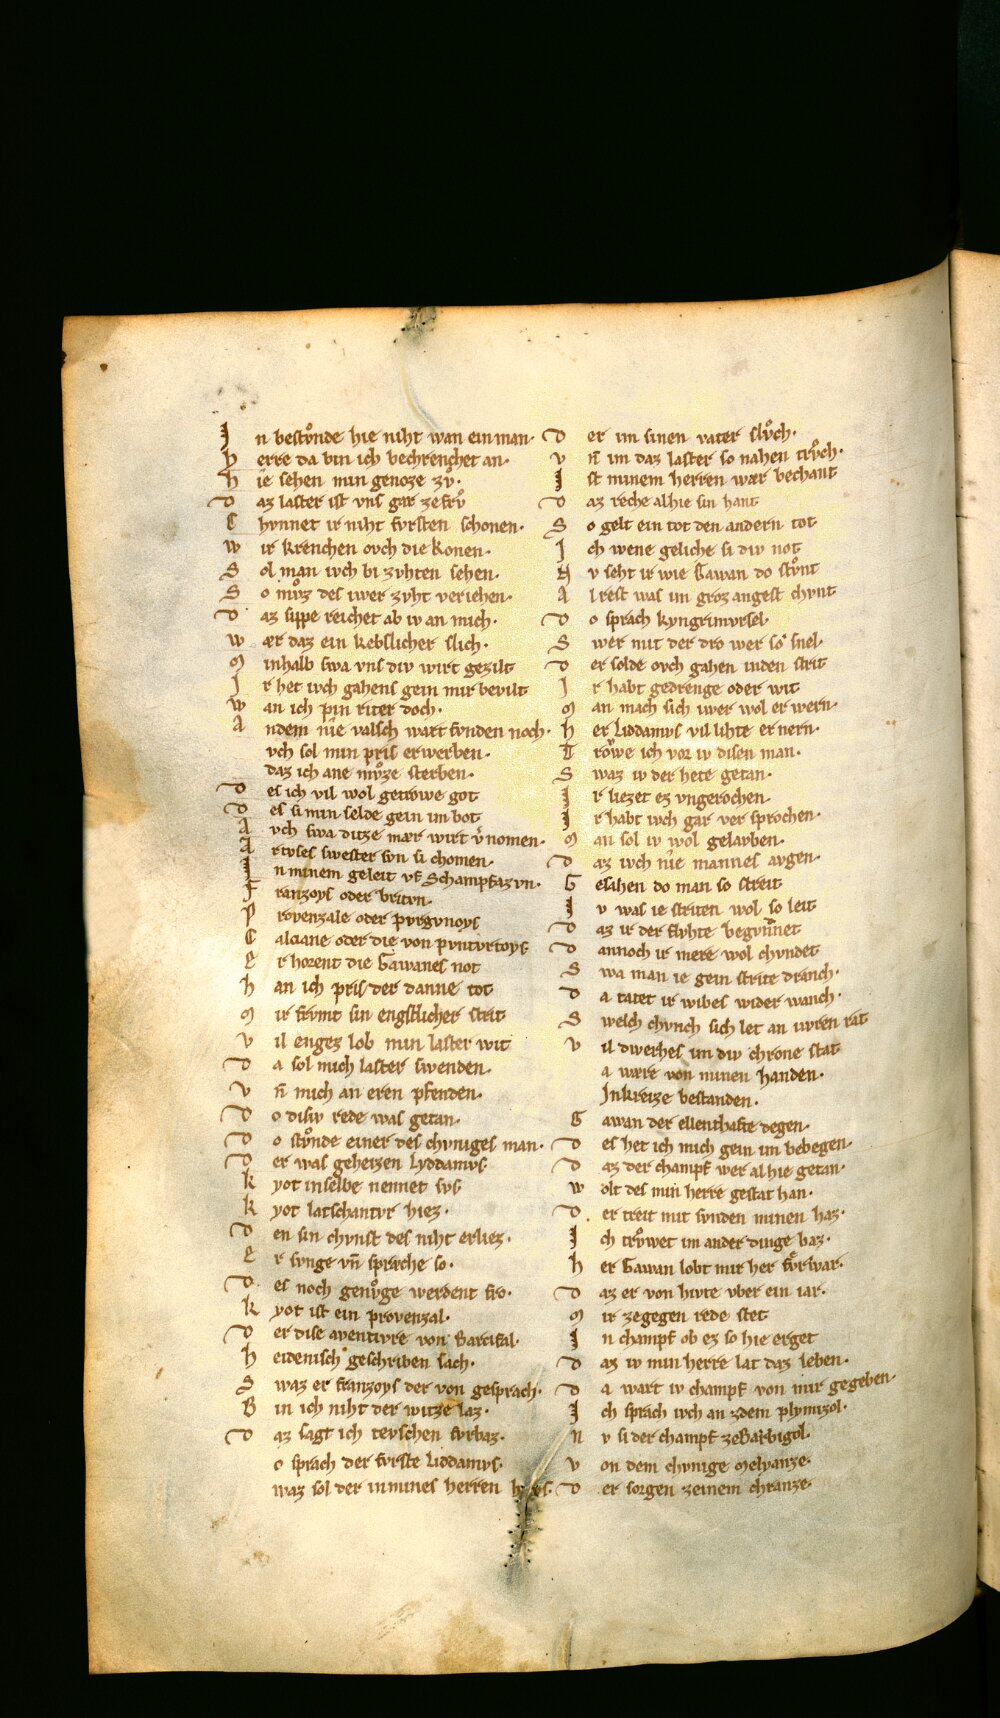 J n bestuͦnde hie niht wan ein man·
H erre da bin ich bechrenchet an·
h ie sehen min genoze zvͦ·
D az laster ist vns gar ze frvͦ
C hvnnet ir niht fvrsten schonen·
W ir krenchen ovch die Konen·
S ol man ivch bi zvhten sehen·
S o mvͦz des iwer zvht veriehen·
D az sippe reichet ab iv an mich·
W ær daz ein kebslicher slich·
M inhalb swa vns div wirt gezilt
J r het ivch gahens gein mir bevilt
W an ich pin riter doch·
A n dem nîe valsch wart fvnden noch·
vch sol min pris erwerben·
daz ich ane mvͦze sterben·
D es ich vil wol getrowe got
D es si min selde gein im bot
A vch swa ditze mær wirt v̾nomen·
A rtvses swester svn si chomen·
J n minem geleit vf Schampfazvn·
F ranzoys oder britvn·
P rovenzale oder pvrgvnoys
C aliciane oder die von pvntvrtoys
E r horent die Gawanes not
h an ich pris der danne tot
M ir frvmt sin engstlicher strit
V il engez lob min laster wit
D a sol mich laster swenden·
V n̄ mich an eren pfenden·
D o disiv rede was getan·
D o stvͦnde einer des chvniges man·
D er was geheizen Lyddamvs
K yot in selbe nennet svs
K yot latschantvr hiez·
D en sin chvnst des niht erliez·
E r svnge vn̄ spræche so·
D es noch genvͦge werdent fro·
K yot ist ein provenzal·
D er dise aventivre von Barcifal·
h eidenisch geschriben sach·
S waz er franzoys der von gesprach·
B in ich niht der witze laz·
D az sagt ich tevschen fvrbaz·
o sprach der fvrste Liddamvs·
waz sol der in mines herren hvs·
D er im sinen vater slvͦch·
V n̄ im daz laster so nahen trvͦch·
J st minem herren wær bechant
D az reche al hie sin hant
S o gelt ein tot den andern tot
J ch wene geliche si div not
N v seht ir wie Gawan do stvͦnt
A lrest was im groz angest chvnt
D o sprach kyngrimvrsel·
S wer mit der dro wer so snel·
D er solde ovch gahen in den strit
J r habt gedrenge oder wit
M an mach sich iwer wol erwern·
h er Liddamvs vil lihte ernern·
T rowe ich vor iv disen man·
S waz iv der hete getan·
J r liezet ez vngerochen·
J r habt ivch gar versprochen·
M an sol iv wol gelavben·
D az ivch nîe mannes avgen·
G esahen do man so streit
J v was ie striten wol so leit
D az ir der flvhte begvnnet
D annoch ir mere wol chvndet
S wa man ie gein strite dranch·
D a tatet ir wibes wider wanch·
S welch chvnch sich let an iwren rat
V il dwerhes im div chrone stat
a wære von minen handen·
Jn kreize bestanden·
G awan der ellenthafte degen·
D es het ich mich gein im bebegen·
D az der champf wer al hie getan·
W olt des min herre gestat han·
D er treit mit svnden minen haz·
J ch trvͦwet im ander dinge baz·
h er Gawan lobt mir her fvͤr war·
D az er von hivte vber ein iar·
M ir ze gegen rede stet
J n champf ob ez so hie erget
D az iv min herre lat daz leben·
D a wart iv champf von mir gegeben·
J ch sprach ivch an zdem plymizol·
N v si der champf ze Barbigol·
V on dem chvnige Melyanze·
D er sorgen zeinem chranze·